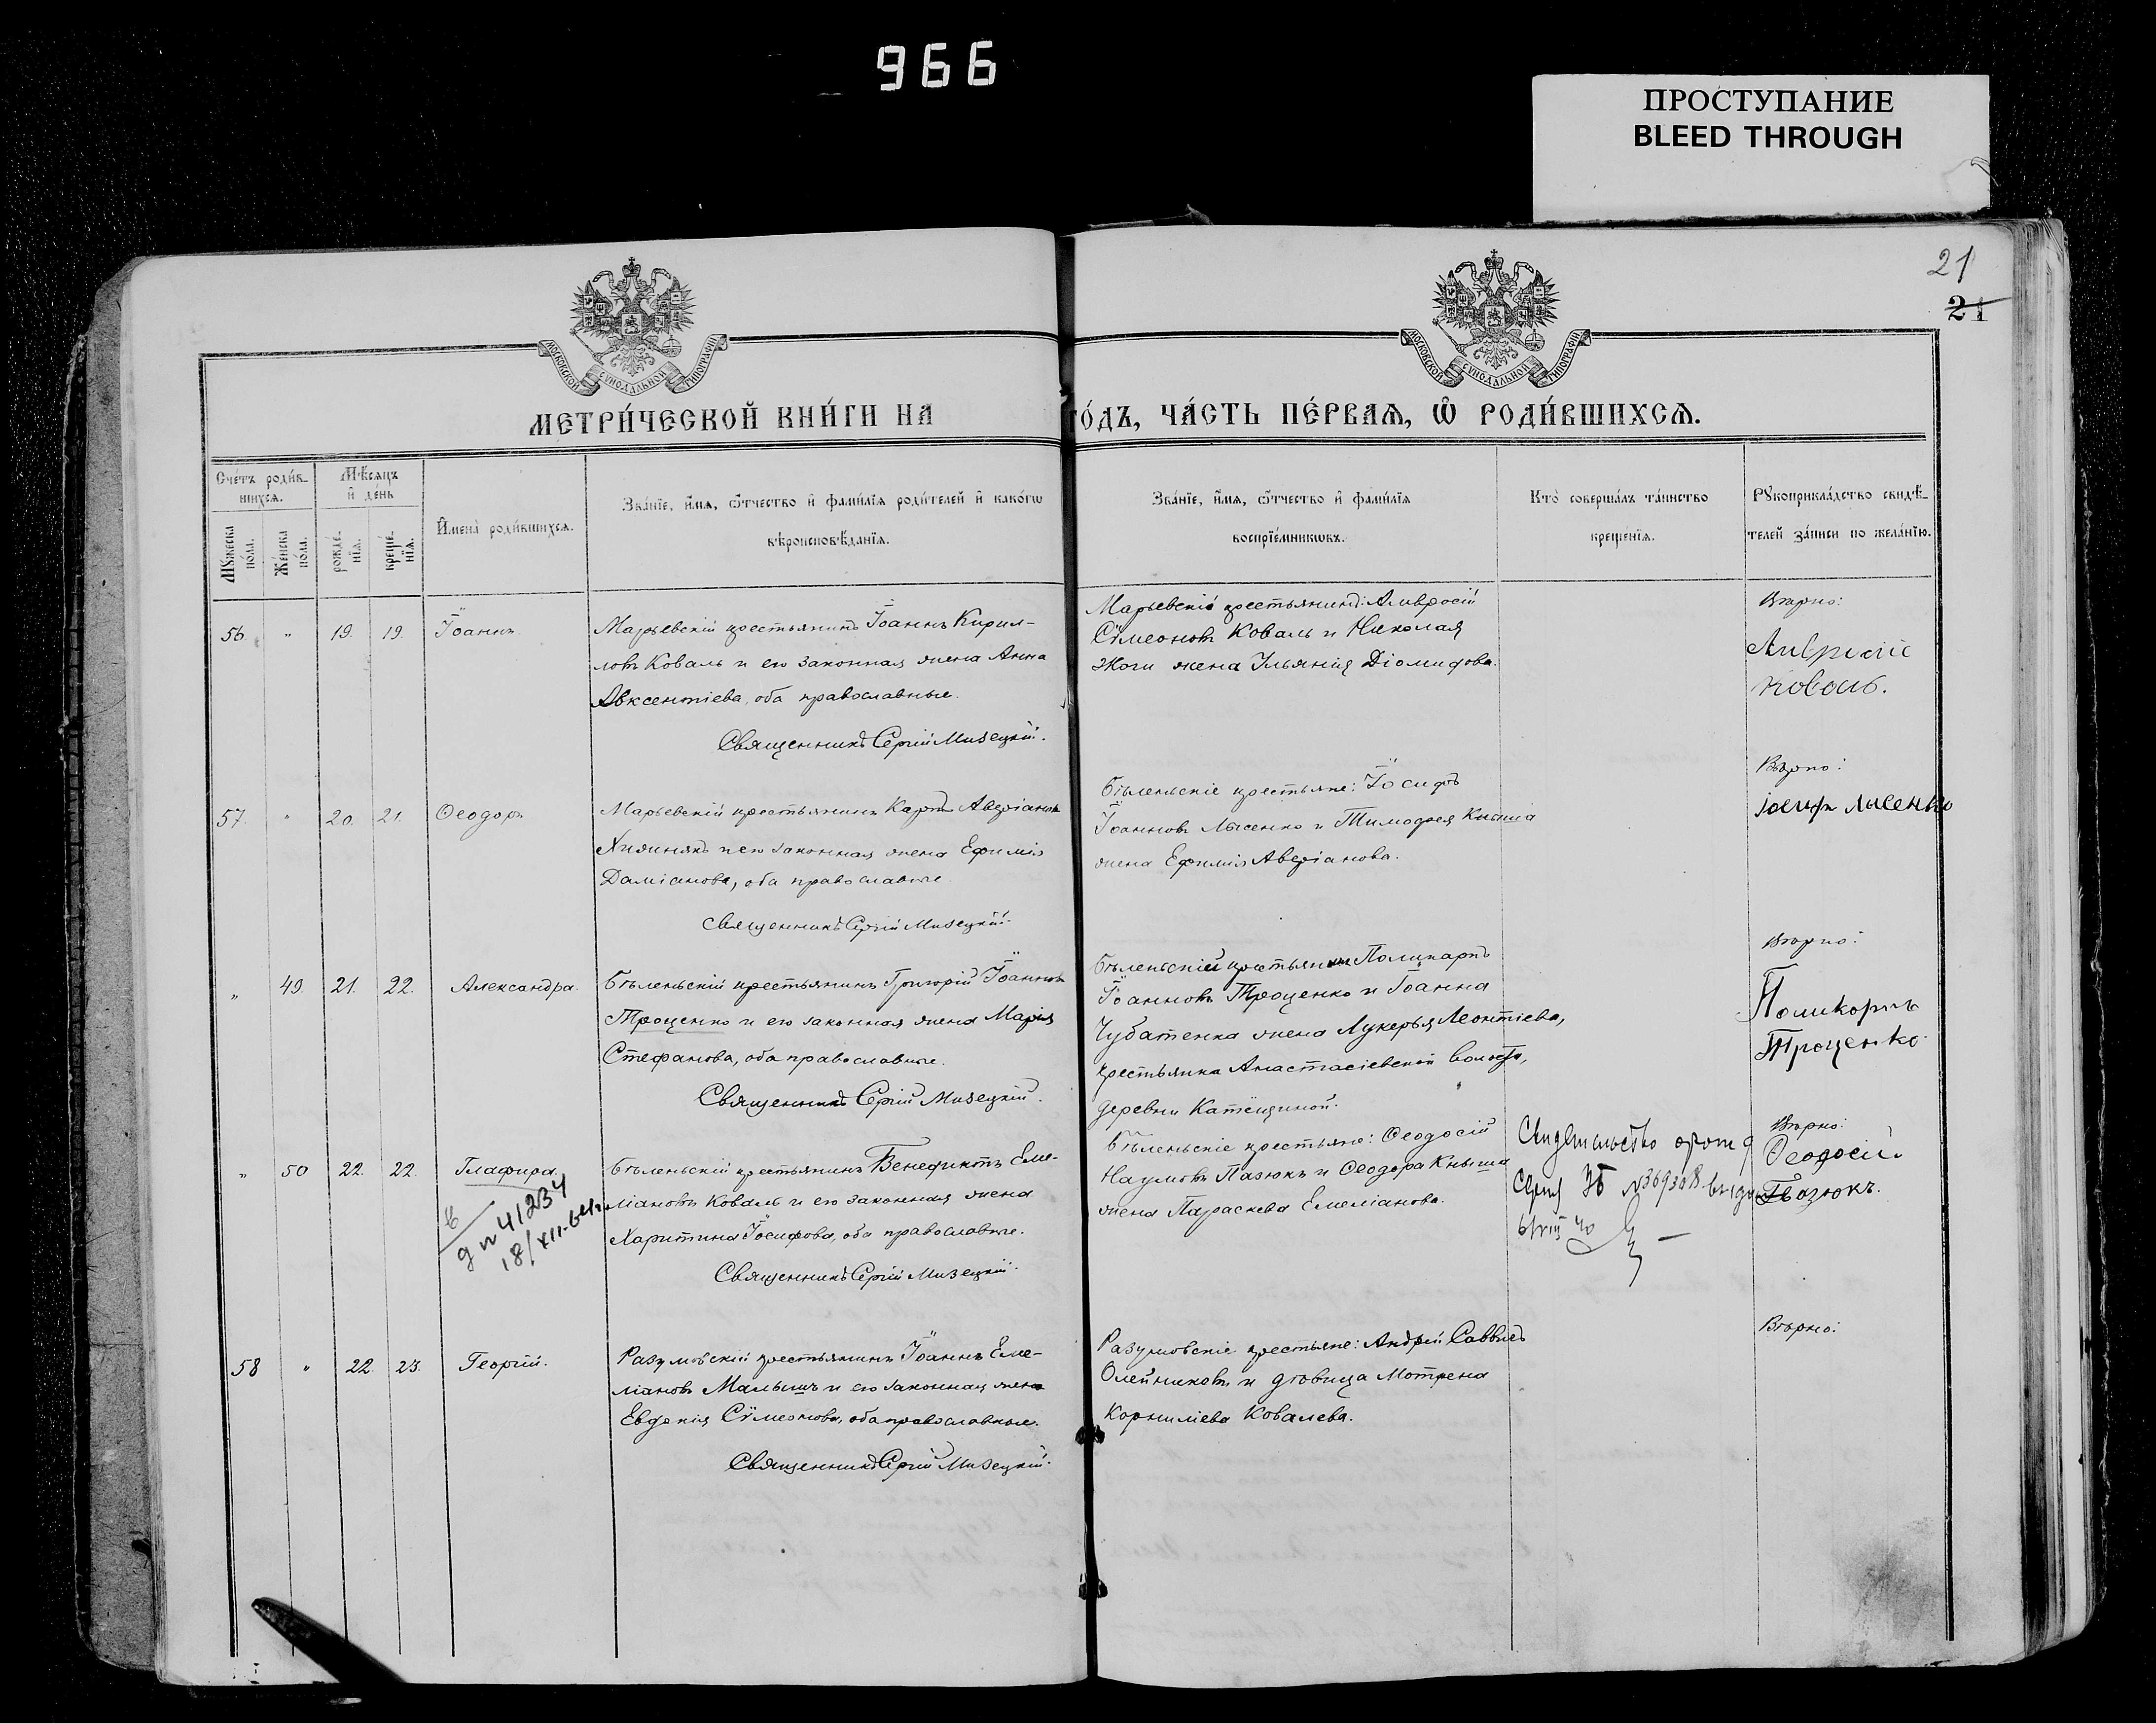 966
ПРОСТУПАНИЕ
BLEED THROUGH
21
21
МОСКОВСКОЙ СѴНОДАЛЬНОЙ ТИПОГРАФІИ
МОСКОВСКОЙ СѴНОДАЛЬНОЙ ТИПОГРАФІИ
МЕТРИ́ЧЕСКОЙ КНИ́ГИ НА
ГО́ДЪ, ЧА́СТЬ ПЕ́РВАѦ, Ѡ҆ РОДИ́ВШИХСѦ.
Сче́тъ роди́в-
шихсѧ.
Мѣ́сѧцъ
и҆ де́нь
И҆мена̀ роди́вшихсѧ.
Зва́нїе, и҆́мѧ, ѻ҆́тчество и҆ фами́лїѧ роди́телей и҆ како́гѡ
вѣроисповѣ́данїѧ.
Зва́нїе, и҆́мѧ, ѻ҆́тчество и҆ фами́лїѧ
воспрїе́мникѡвъ.
Кто̀ соверша́лъ та́инство
креще́нїѧ.
Рꙋкоприкла́дство свидѣ́-
телей за́писи по жела́нїю.
Мꙋ́жеска по́ла.
Же́нска по́ла.
рожде́-нїѧ.
креще́-нїѧ.
56. " 19. 19. Іоаннъ.
Марьевскій крестьянинъ Іоаннъ Кирил-
ловъ Коваль и его законная жена Анна
Авксентіева, оба православные.
Священникъ Сергій Мизецкій.
Марьевскіе крестьяни: Амвросій
Сѵмеоновъ Коваль и Николая
жена Ульянія Діомидова.
Вѣрно:
Коваль.
57. " 20. 21. Ѳеодоръ
Марьевскій крестьянинъ Карпъ Аверіановъ
и его законная жена Ефимія
Даміанова, оба православные
Священникъ Сергій Мизецкій.
Бѣленьскіе крестьяне: Іосифъ
Іоанновъ Лысенко и Тимофея Кныша
жена Ефимія Аверіанова.
Вѣрно:
Іосифъ Лысенко
" 49. 21. 22. Александра.
Бѣленьскій крестьянинъ Григорій Іоанновъ
Троценко и его законная жена Марія
Стефанова, оба православные.
Священникъ Сергій Мизецкій.
Бѣленьскій крестьянин Поликарпъ
Іоанновъ Троценко и Іоанна
Чубатенка жена Лукерья Леонтіева,
крестьянка Анастасіевской волости,
деревни Катещиной.
Вѣрно:
Поликарпъ
Троценко
" 50 22. 22. Глафира.
д n 41234
18/XII-64г.
Бѣленьскій крестьянинъ Венедиктъ Еме-
ліановъ Коваль и его законная жена
Харитина Іосифова, оба православные.
Священникъ Сергій Мизецкій.
Бѣленьскіе крестьяне: Ѳеодосій
Наумовъ Пазюкъ и Ѳеодора Кныша
жена Параскева Емеліанова.
Свидетельство
серия № 369308
Вѣрно:
Ѳеодосій
Пазюкъ.
58 " 22. 23. Георгій.
Разумовскій крестьянинъ Іоаннъ Еме-
ліановъ Малышъ и его законная жена
Евдокія Сѵмеонова, оба православные.
Священникъ Сергій Мизецкій.
Разумовскіе крестьяне: Андрей Саввич
Олейниковъ и дѣвица Мотрена
Корниліева Ковалева.
Вѣрно: